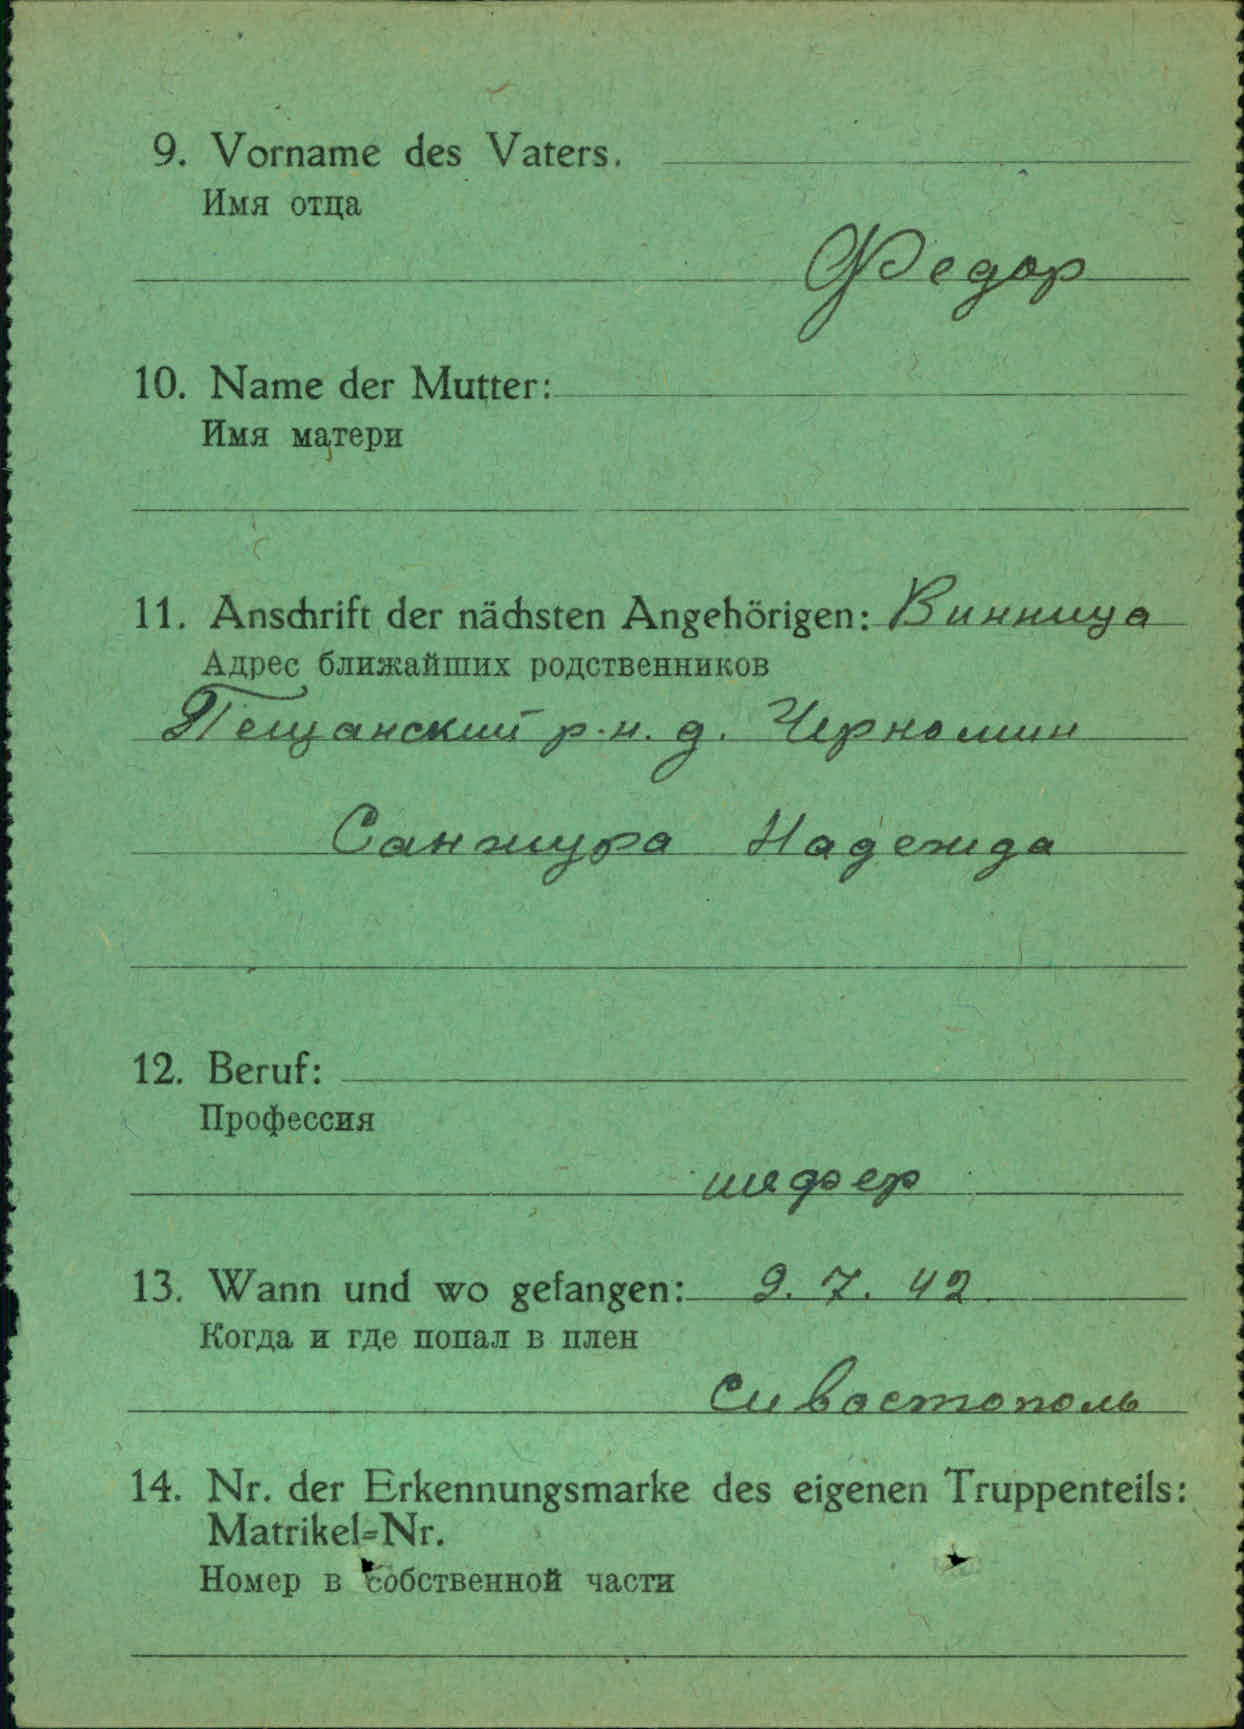 9. Vorname des Vaters.
Имя отца
Федор
10. Name der Mutter:
Имя матери
11. Anschrift der nächsten Angehörigen: Винница
Адрес ближайших родственников
Пещанский р-н. д. Черномин
Санжура Надежда
12. Beruf:
Профессия
шефер
13. Wann und wo gefangen: 9. 7. 42.
Когда и где попал в плен
Сивастополь
14. Nr. der Erkennungsmarke des eigenen Truppenteils:
Matrikel=Nr.
Номер в собственной части